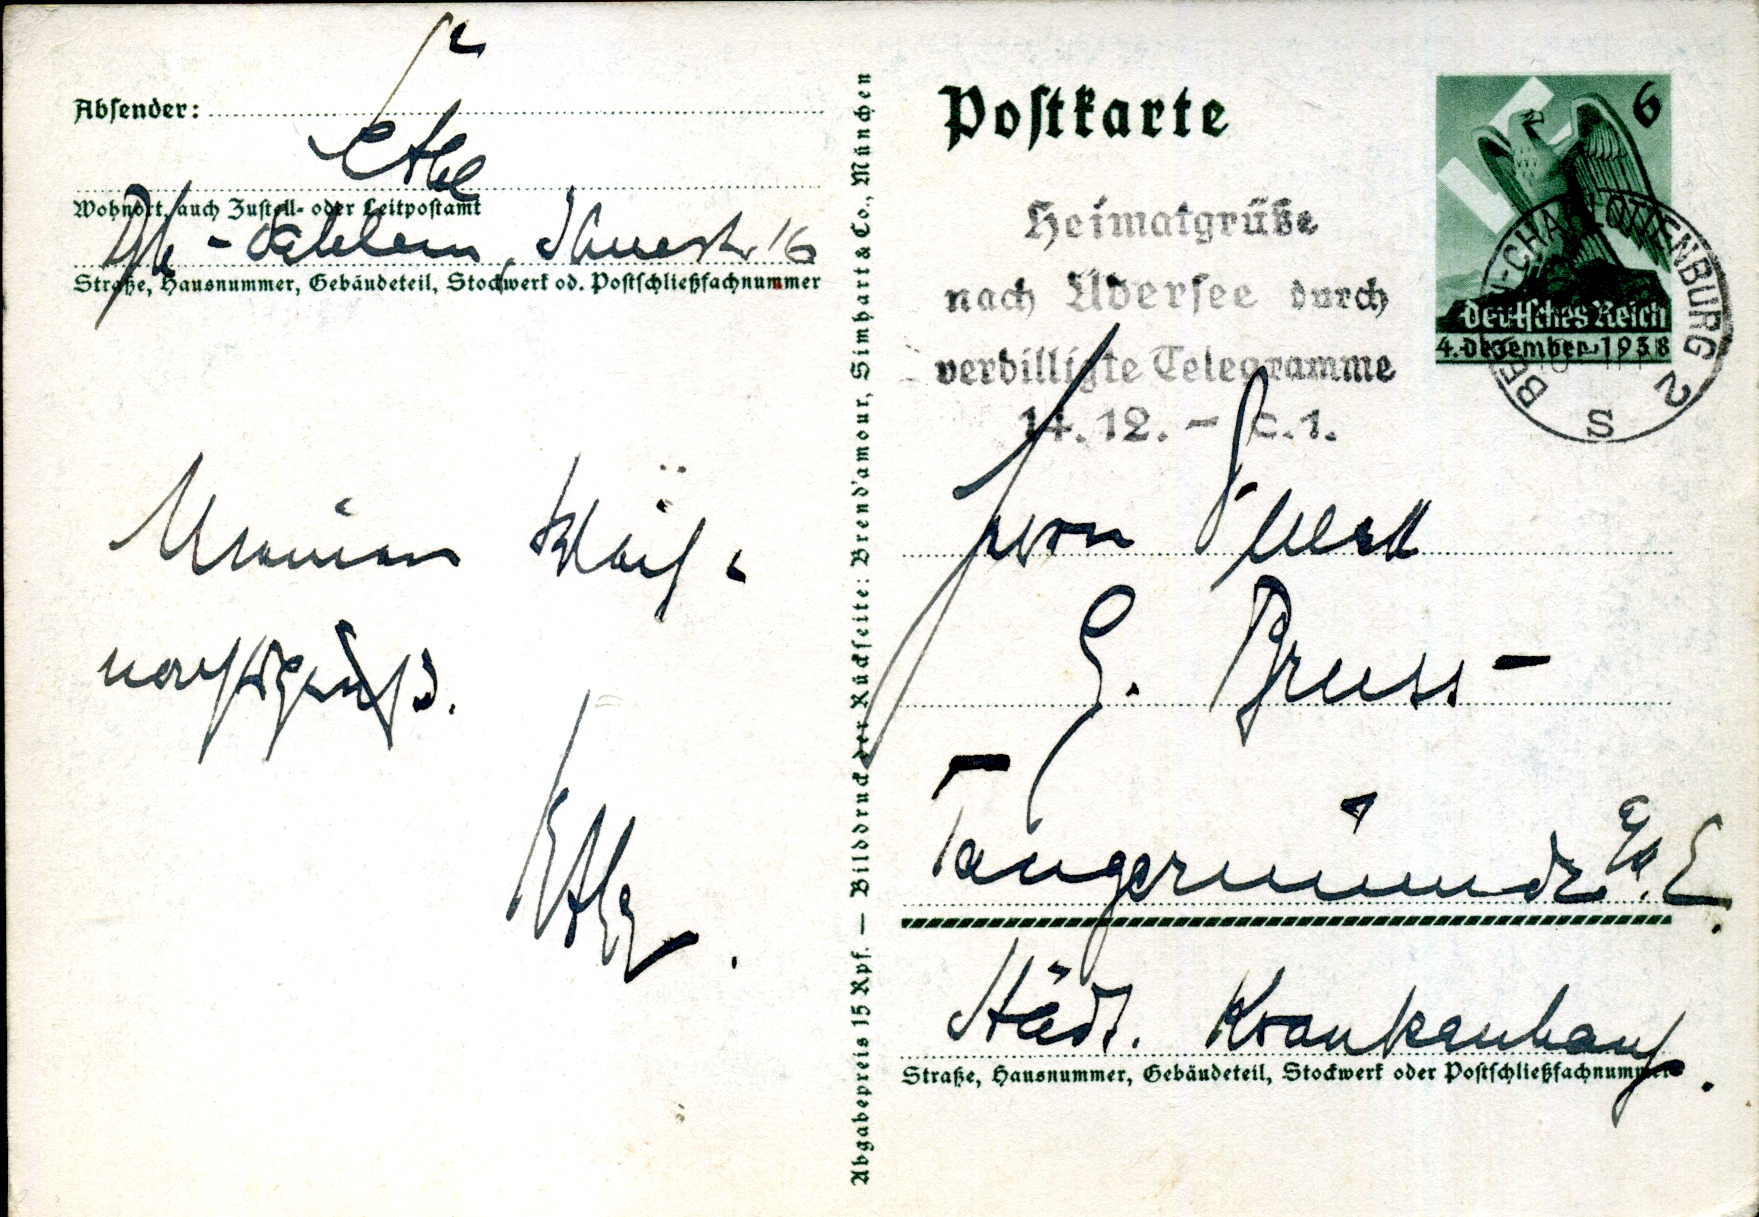 Absender:
Wohnort, auch Zustell- oder Leitpostamt
- Dahlem, 16
Straße, Hausnummer, Gebäudeteil, Stockwerk od. Postschließfachnummer
Weih-
nachtsgruß.
Abgabepreis 15 Rpf. — Bilddruck der Rückseite: Brend'amour, Simhart & Co., München
Postkarte
6
Deutsches Reich
4. Dezember 1938
BERLIN-CHARLOTTENBURG 2
S
Heimatgrüße
nach Übersee durch
verbilligte Telegramme
14.12. - 6.1.
Herrn
E. Bruss -
Tangermünde a/ E.
Städt. Krankenhaus.
Straße, Hausnummer, Gebäudeteil, Stockwerk oder Postschließfachnummer